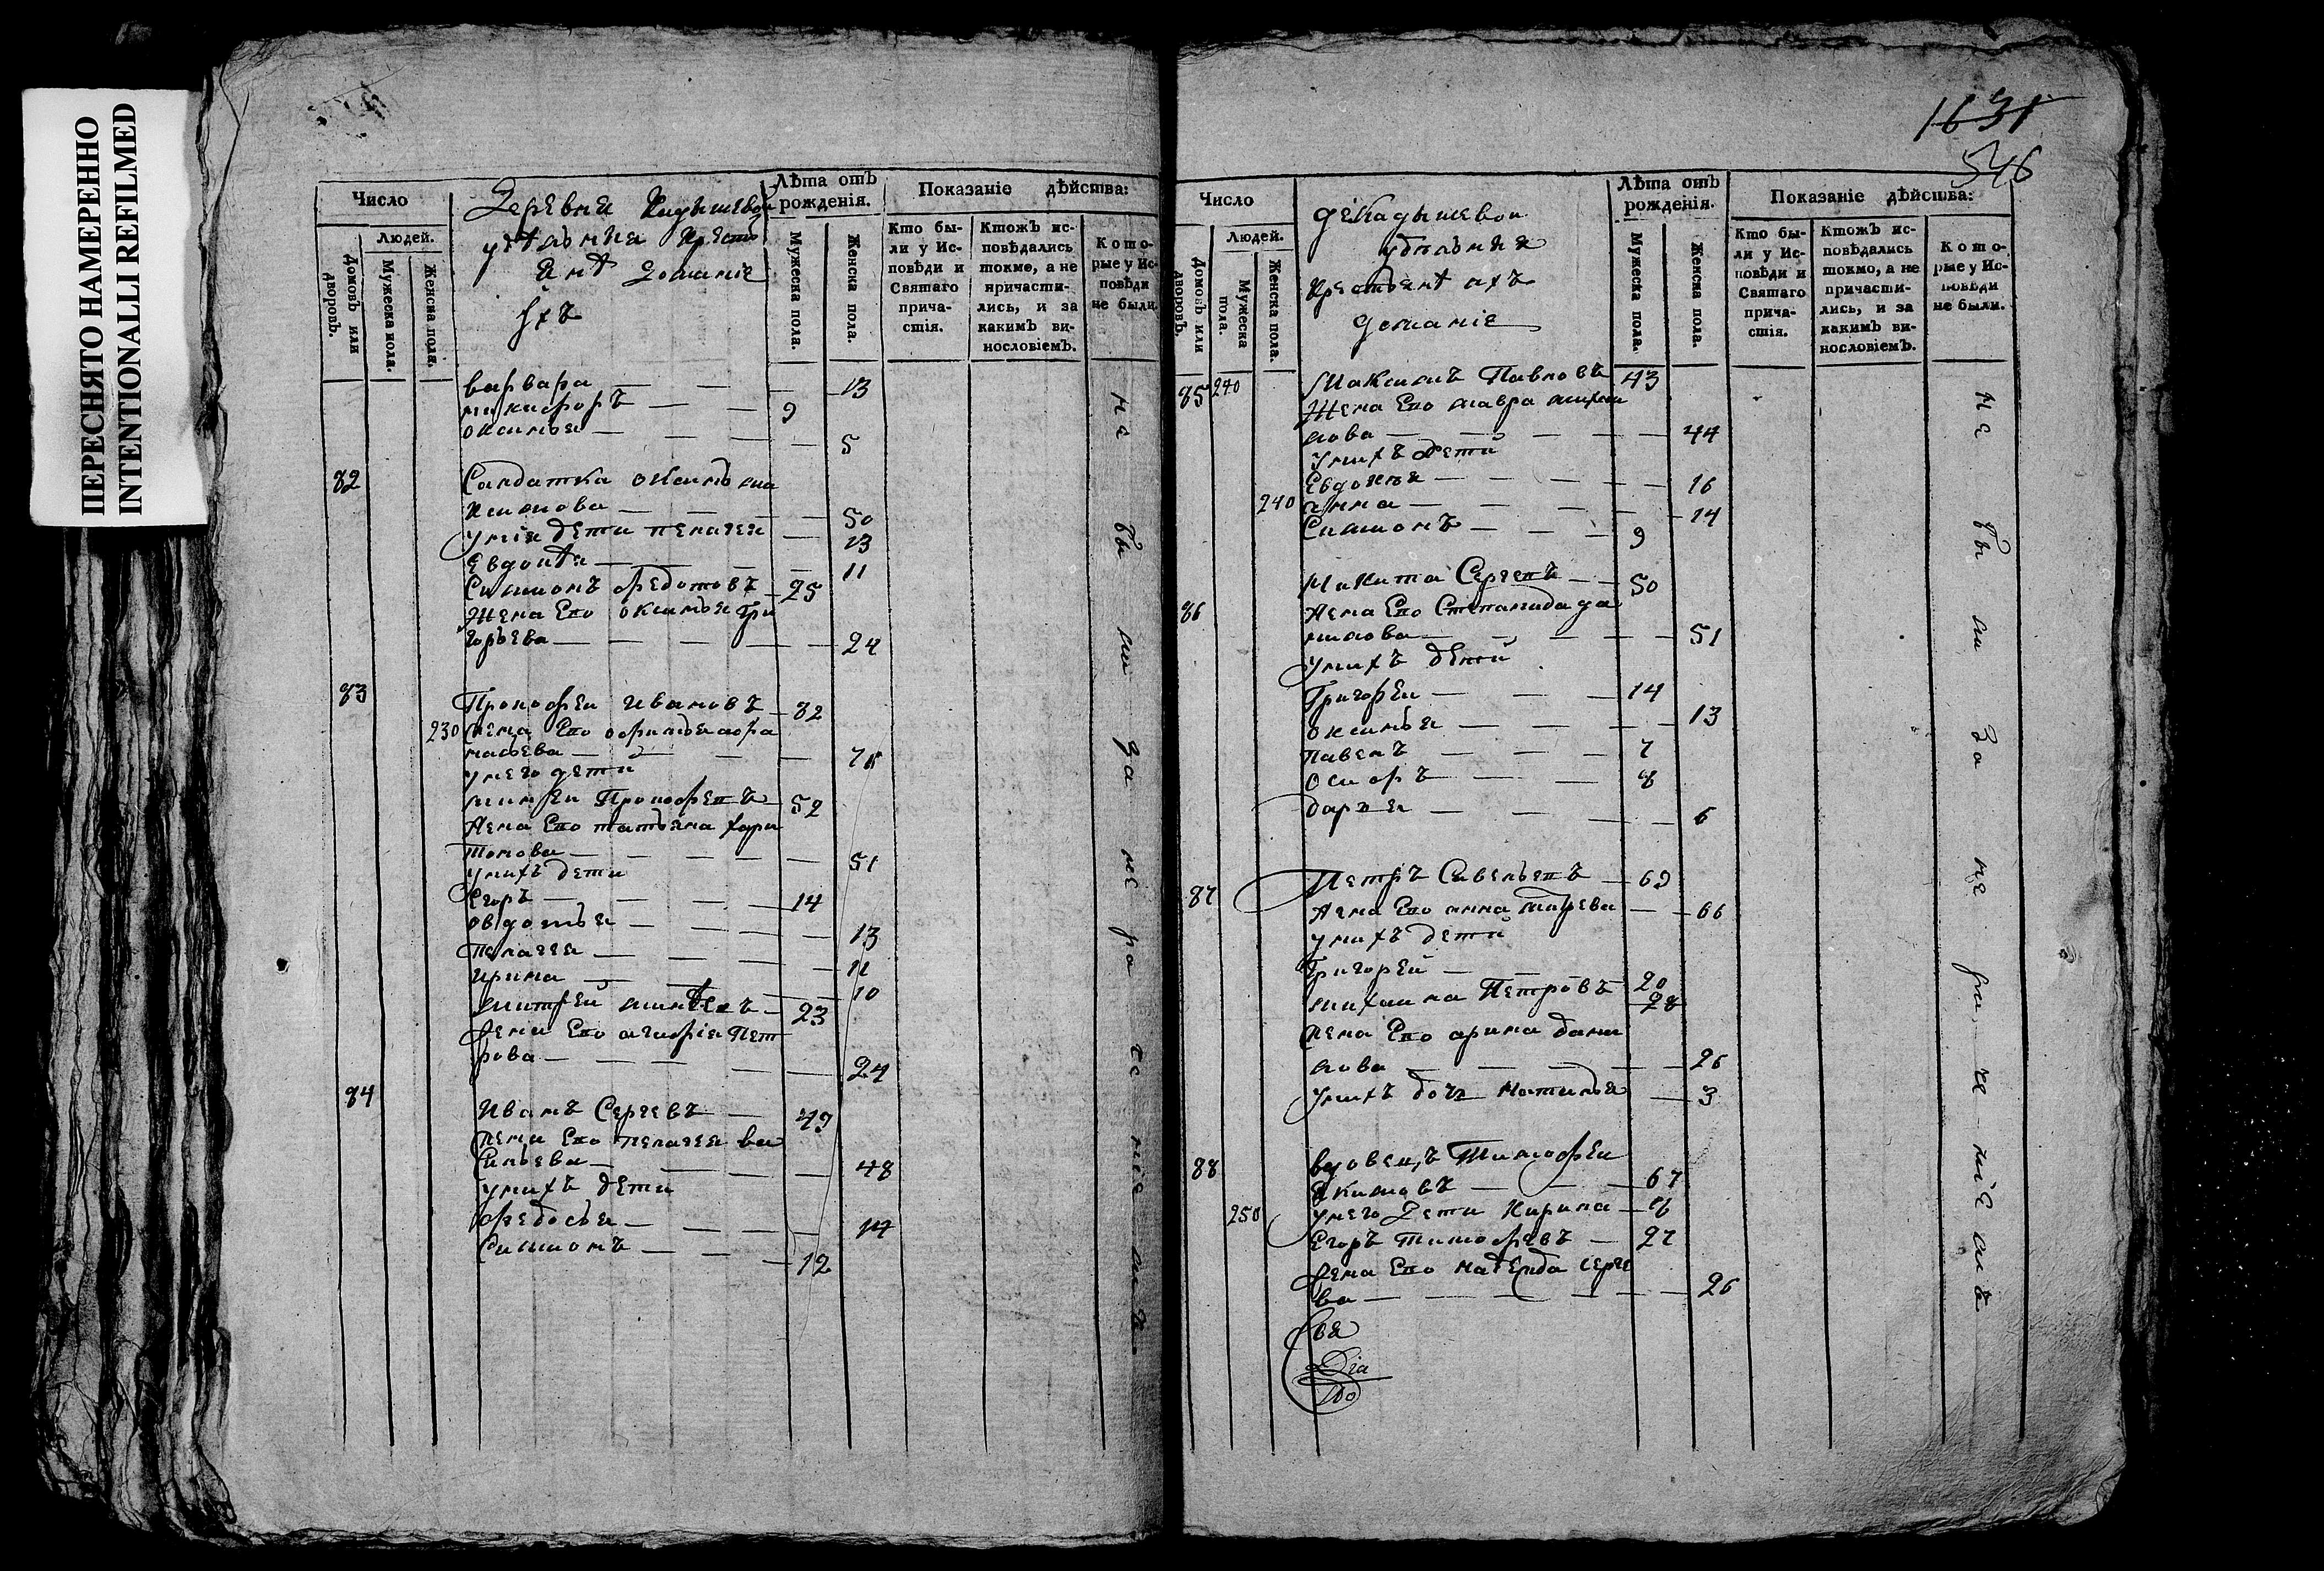 ПЕРЕСНЯТО НАМЕРЕННО
INTENTIONALLI REFILMED
Число
Людей.
Домовъ или дворовъ.
Мужеска пола.
Женска пола.
Деревни Кадышевой
удѣльния крестья
не домашніе
ихъ
Лѣта отъ рожденія.
Мужеска пола.
Женска пола.
Показаніе дѣйства:
Кто были у Исповѣди и Святаго причастія.
Ктожъ исповѣдались токмо, а не причастились, и за какимъ винословіемъ.
Которые у Исповѣди не были.
варвара — — — 13
никифоръ — — 9
оксинья — — — 5
82 Салдатка оксинья
— — 50
унія дети пелагея — 13
Евдокѣя — — 11
Симионъ федотовъ — 25
Жена Ево оксинья Гри
горьева — — — 24
83 Прокофеи ивановъ — 82
230 жена Ево
— — 71
унего дети
Прокофевъ 52
жена Ево татьяна хари
тонова — — — 51
унихъ дети
Егоръ — — — 14
овдотья — — — 13
Пелагея — — — 11
ирина — — — 10
митрей — 23
жена Ево агафія Пет
рова — — — 24
84 Иванъ Сергевъ — 49
жена Ево пелагея ва
сильева — — — 48
унихъ дети
федосья — — — 14
Симионъ — — 12
не бы ли за не ра че ніе мъ
1631
546
Число
Людей.
Домовъ или дворовъ.
Мужеска пола.
Женска пола.
де Кадышевои
удѣльния
крестьянѣ ихъ
домашніе
Лѣта отъ рожденія.
Мужеска пола.
Женска пола.
Показаніе дѣйства:
Кто были у Исповѣди и Святаго причастія.
Ктожъ исповѣдались токмо, а не причастились, и за какимъ винословіемъ.
Которые у Исповѣди не были.
85 240 Максимъ Павловъ 43
Жена Ево мавра михаи
лова — — — 44
унихъ дети
Евдокия — — — 16
240 анна — — — 14
Симионъ — — 9
Никита Сергевъ — 50
86 жена Ево Степанида да
нилова — — — 51
унихъ дети
Григореи — — 14
оксинья — — — 13
павелъ — — 7
осифъ — — 8
дарья — — — 6
87 Петръ Савельевъ — 69
жена Ево анна — 66
унихъ дети
Григорей — 20
михаила Петровъ — 28
жена Ево арина дани
лова — — — 26
унихъ дочь наталья — 3
88 вдовецъ Тимофеи
акимовъ — — 67
250 унего дети Кирила — 8
Егоръ Тимофевъ — 27
жена Ево надежда серге
ва — — — 26
не бы ли за не ра че ніе мъ